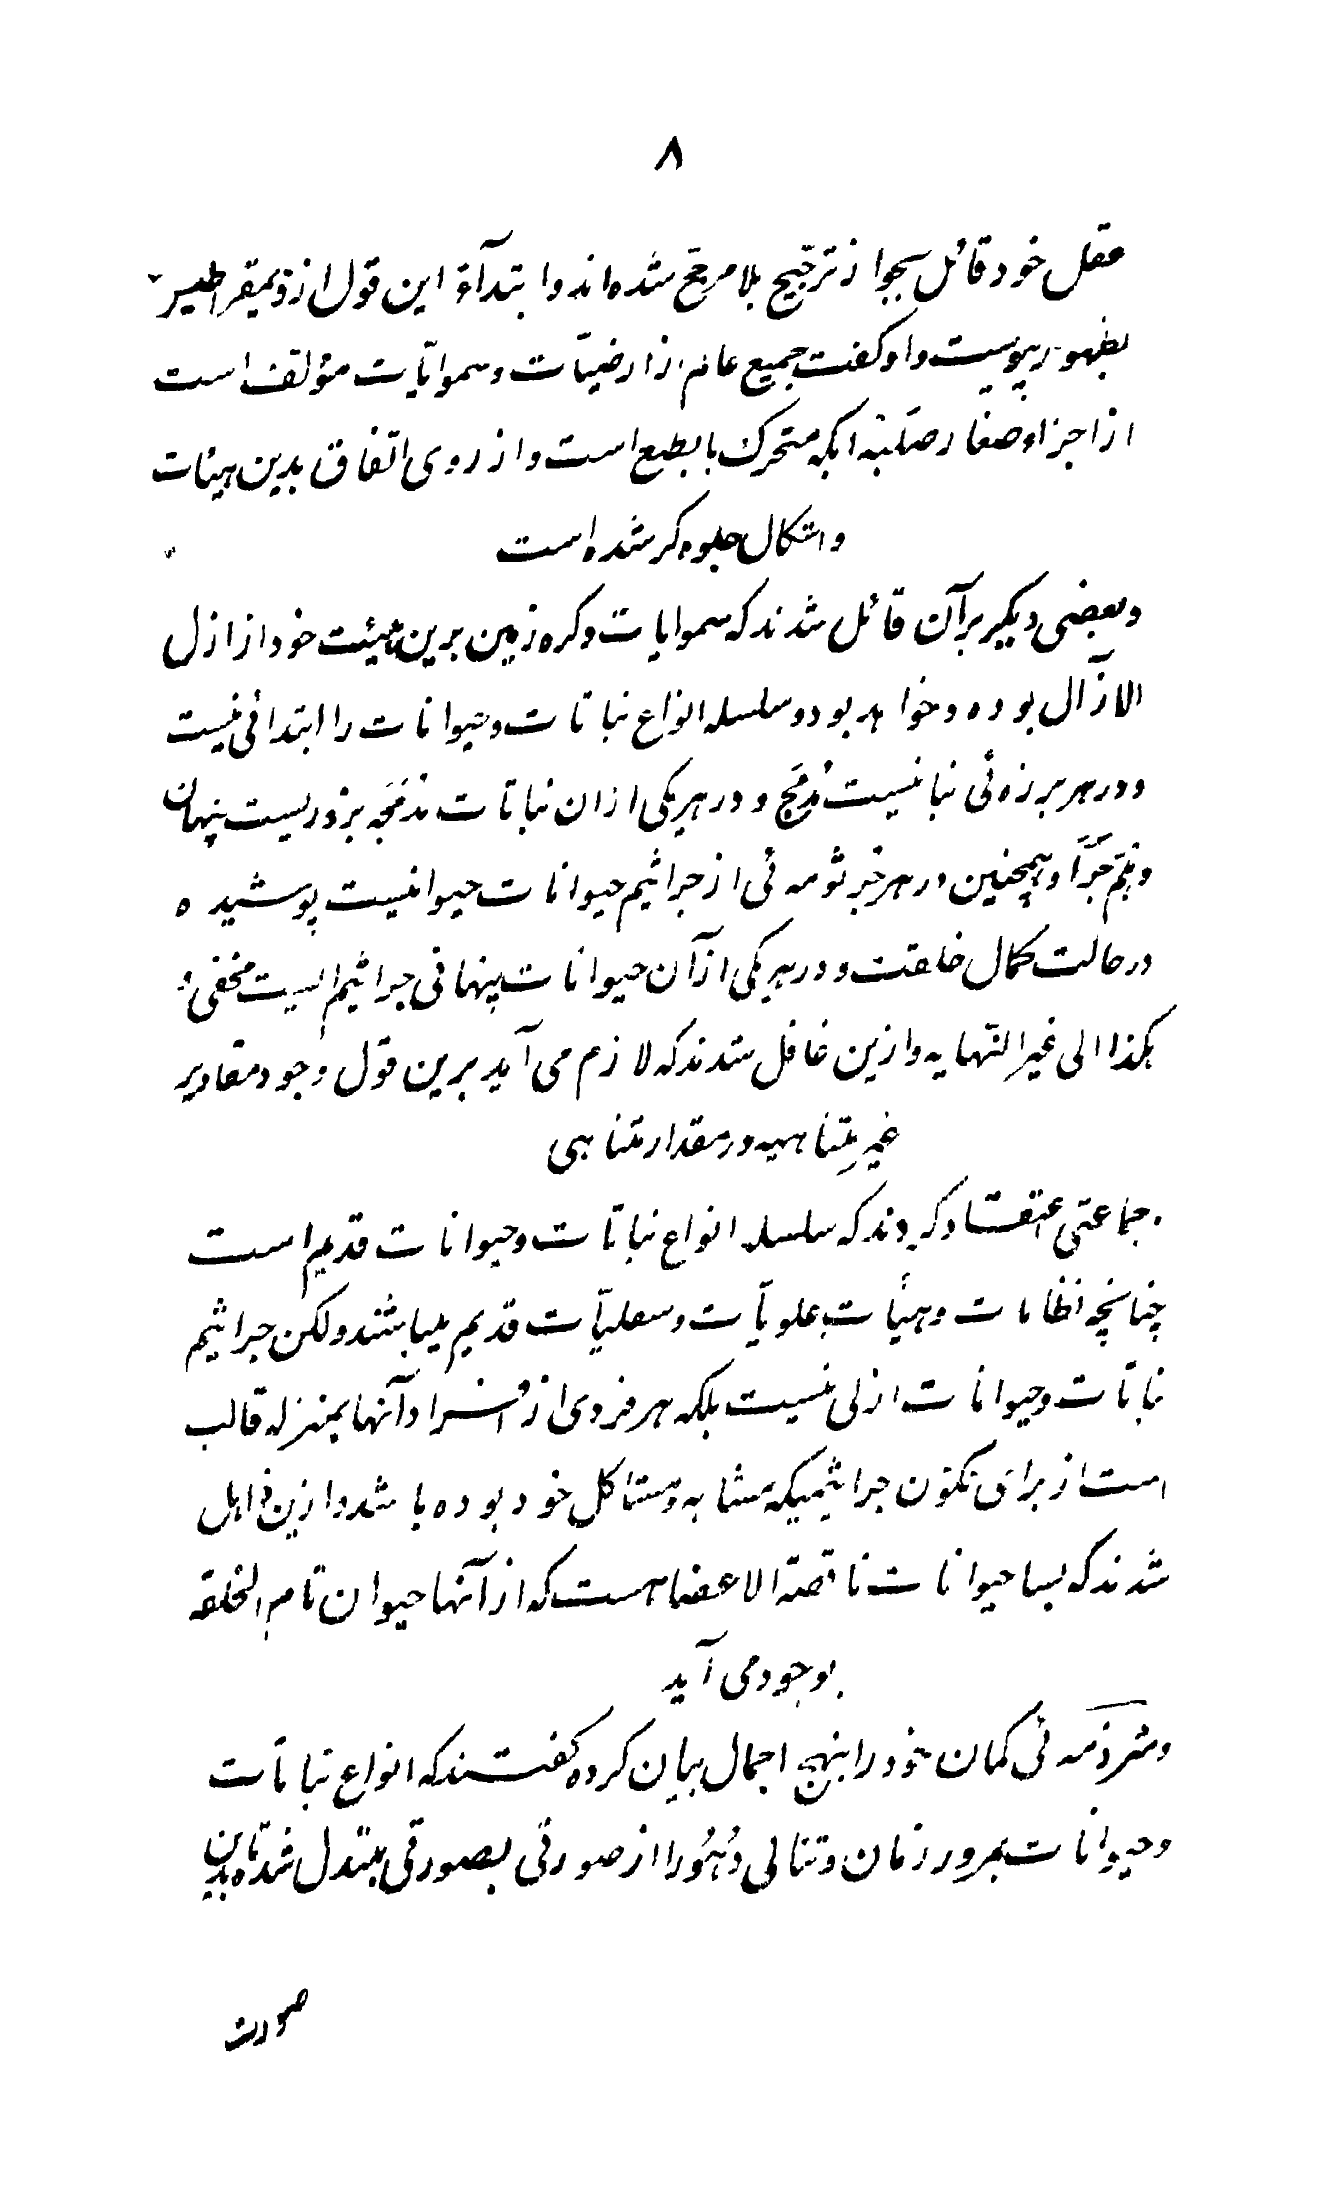 ۸
عقل خود قائل بجواز ترجیح بلا مرجح شده‌اند و ابتدآء این قول از ذیمقراطیس
بظهور پیوست و او گفت جمیع عالم از ارضیّات و سموایّات مؤلف است
از اجزاء صغار صلبه ایکه متحرک بالطبع است و از روی اتّفاق بدین هیئات
و اشکال جلوه گر شده است
و بعضی دیگر بر آن قائل شدند که سموایات و کره زمین برین هیئت خود از ازل
الازآل بوده و خواهد بود و سلسله انواع نباتات و حیوانات را ابتدائی نیست
و در هر برزه‌ئی نباتیست مُدمَج و در هریکی ازان نباتات مُدمَجه بزوریست پنهان
و هَلُمّ جَرّاً و همچنین در هر جُرثومه‌ئی از جراثیم حیوانات حیوانیست پوشیده
در حالت کمال خلقت و در هریکی ازآن حیوانات پنهانی جراثیم ایست مخفی و
هکذا الی غیر النّهایه و ازین غافل شدند که لازم می‌آید برین قول وجود مقادیر
غیر متناهیه در مقدار متناهی
و جماعتی اعتقاد کردند که سلسله انواع نباتات و حیوانات قدیم است
چنانچه نظامات و هیئات علویّات و سفلیّات قدیم میباشند ولکن جراثیم
نباتات و حیوانات ازلی نیست بلکه هر فردی از افراد آنها بمنزله قالب
است از برای تکوّن جراثیمیکه مشابه و مشاکل خود بوده باشد و ازین ذاهل
شدند که بسا حیوانات ناقصة الاعضا هست که از آنها حیوان تام الخلقه
بوجود می‌آید
و شرذمه‌ئی گمان خود را بنهج اجمال بیان کرده گفتند که انواع نباتات
و حیوانات بمرور زمان و تتالی دُهُور از صورتی بصورتی متبدل شده تا بدین
صورت